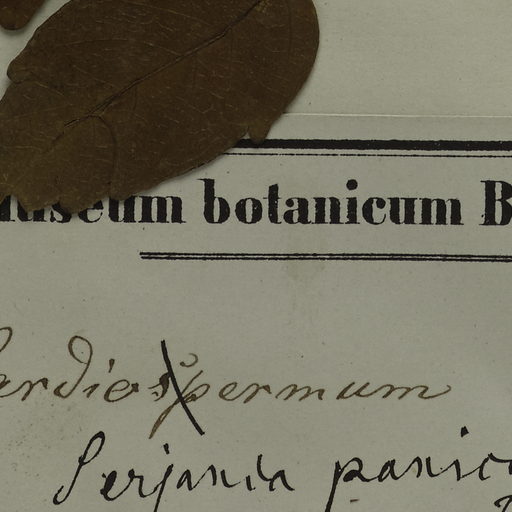 museum botanicum B
Cardiospermum
Serjania panic